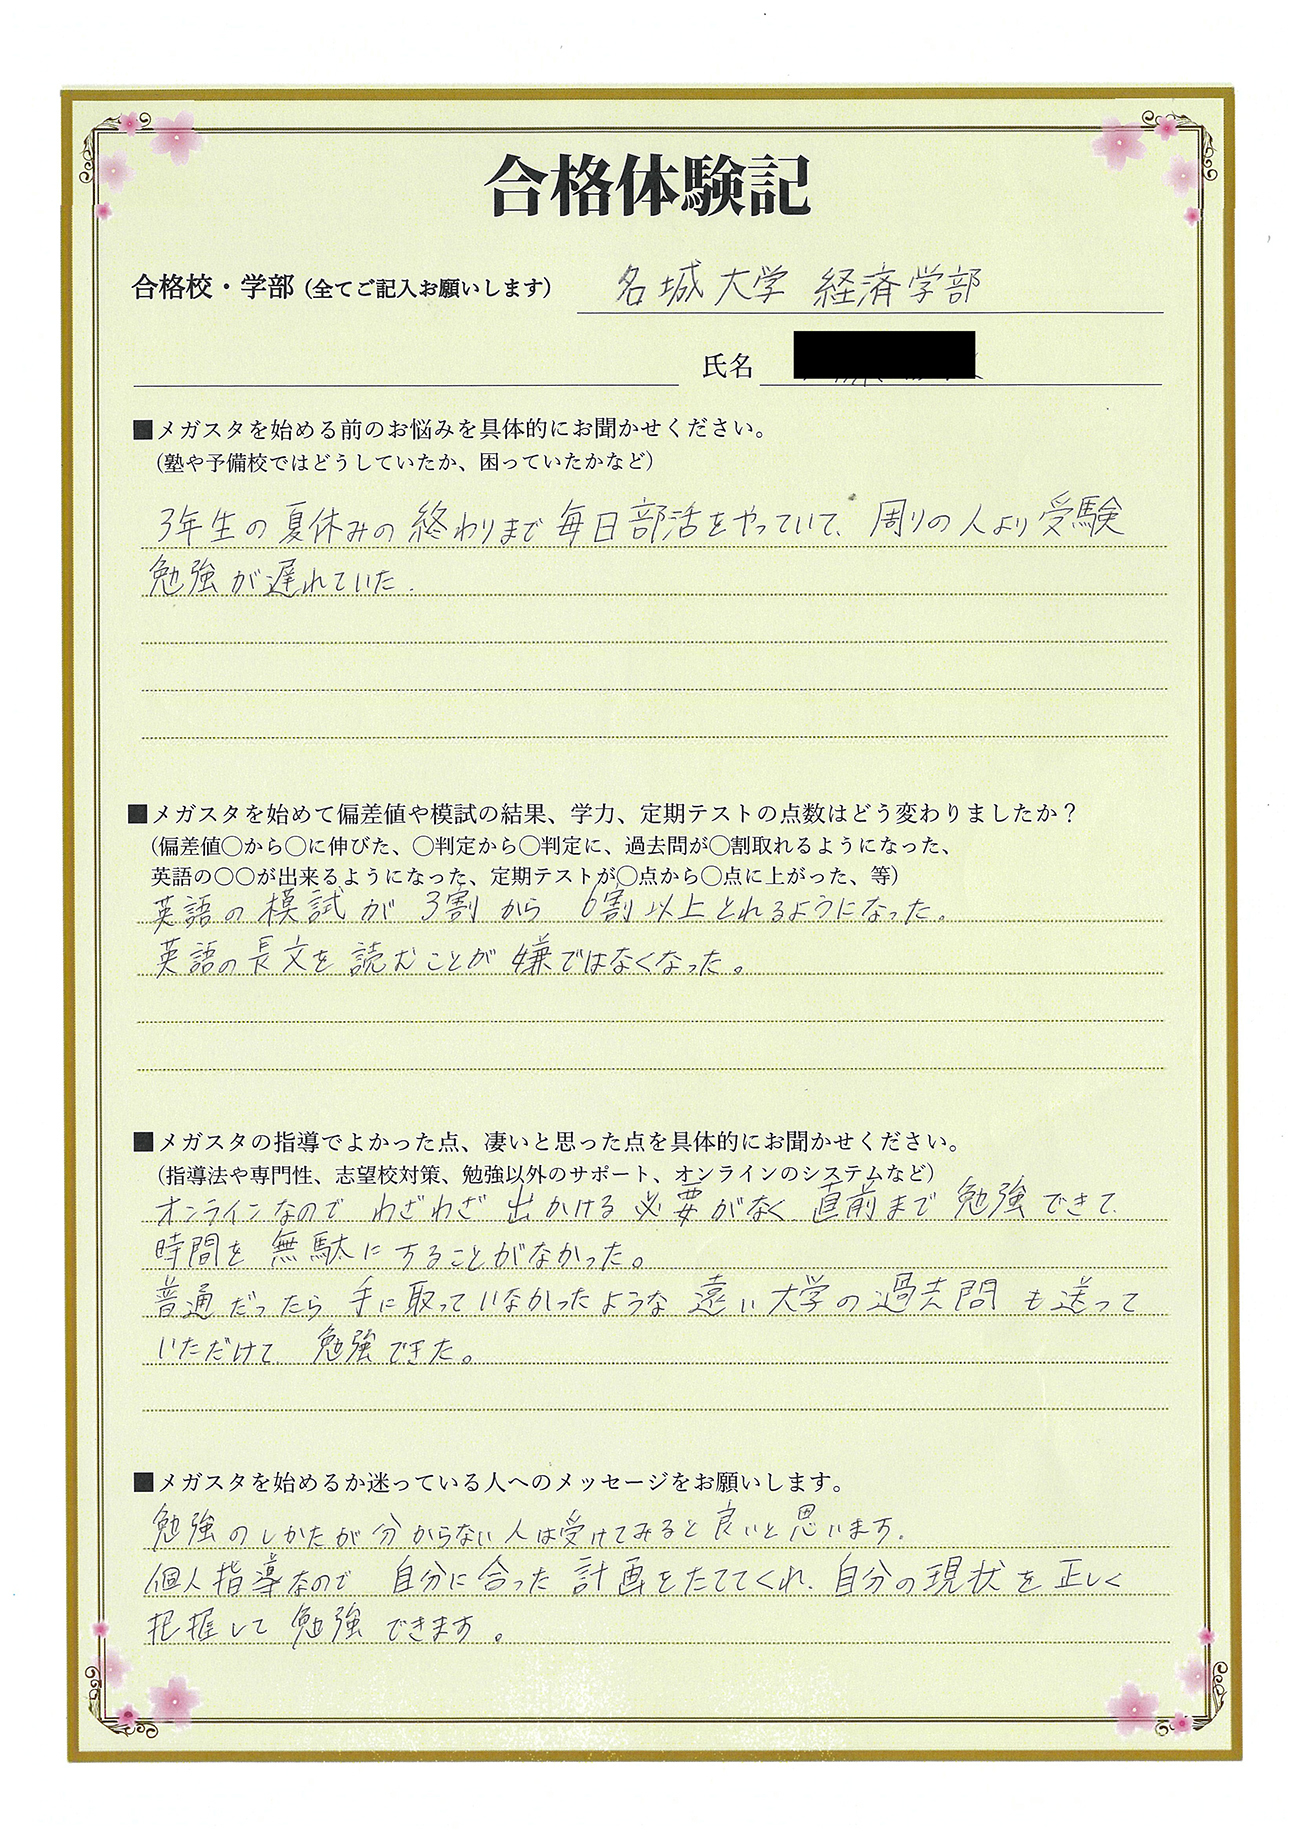 合格体験記
合格校・学部（全てご記入お願いします） 名城大学 経済学部
氏名
■メガスタを始める前のお悩みを具体的にお聞かせください。
（塾や予備校ではどうしていたか、困っていたかなど）
3年生の夏休みの終わりまで毎日部活をやっていて、周りの人より受験
勉強が遅れていた.
■メガスタを始めて偏差値や模試の結果、学力、定期テストの点数はどう変わりましたか？
（偏差値〇から〇に伸びた、〇判定から〇判定に、過去問が〇割取れるようになった、
英語の〇〇が出来るようになった、定期テストが〇点から〇点に上がった、等）
英語の模試が3割から 6割以上とれるようになった。
英語の長文を読むことが嫌ではなくなった。
■メガスタの指導でよかった点、凄いと思った点を具体的にお聞かせください。
（指導法や専門性、志望校対策、勉強以外のサポート、オンラインのシステムなど）
オンラインなので わざわざ 出かける必要がなく、直前まで勉強できて、
時間を無駄にすることがなかった。
普通だったら手に取っていなかったような遠い大学の過去問も送って
いただけて、勉強できた。
■メガスタを始めるか迷っている人へのメッセージをお願いします。
勉強のしかたが分からない人は受けてみると良いと思います.
個人指導なので 自分に合った計画をたててくれ、自分の現状を正しく
把握して勉強できます。